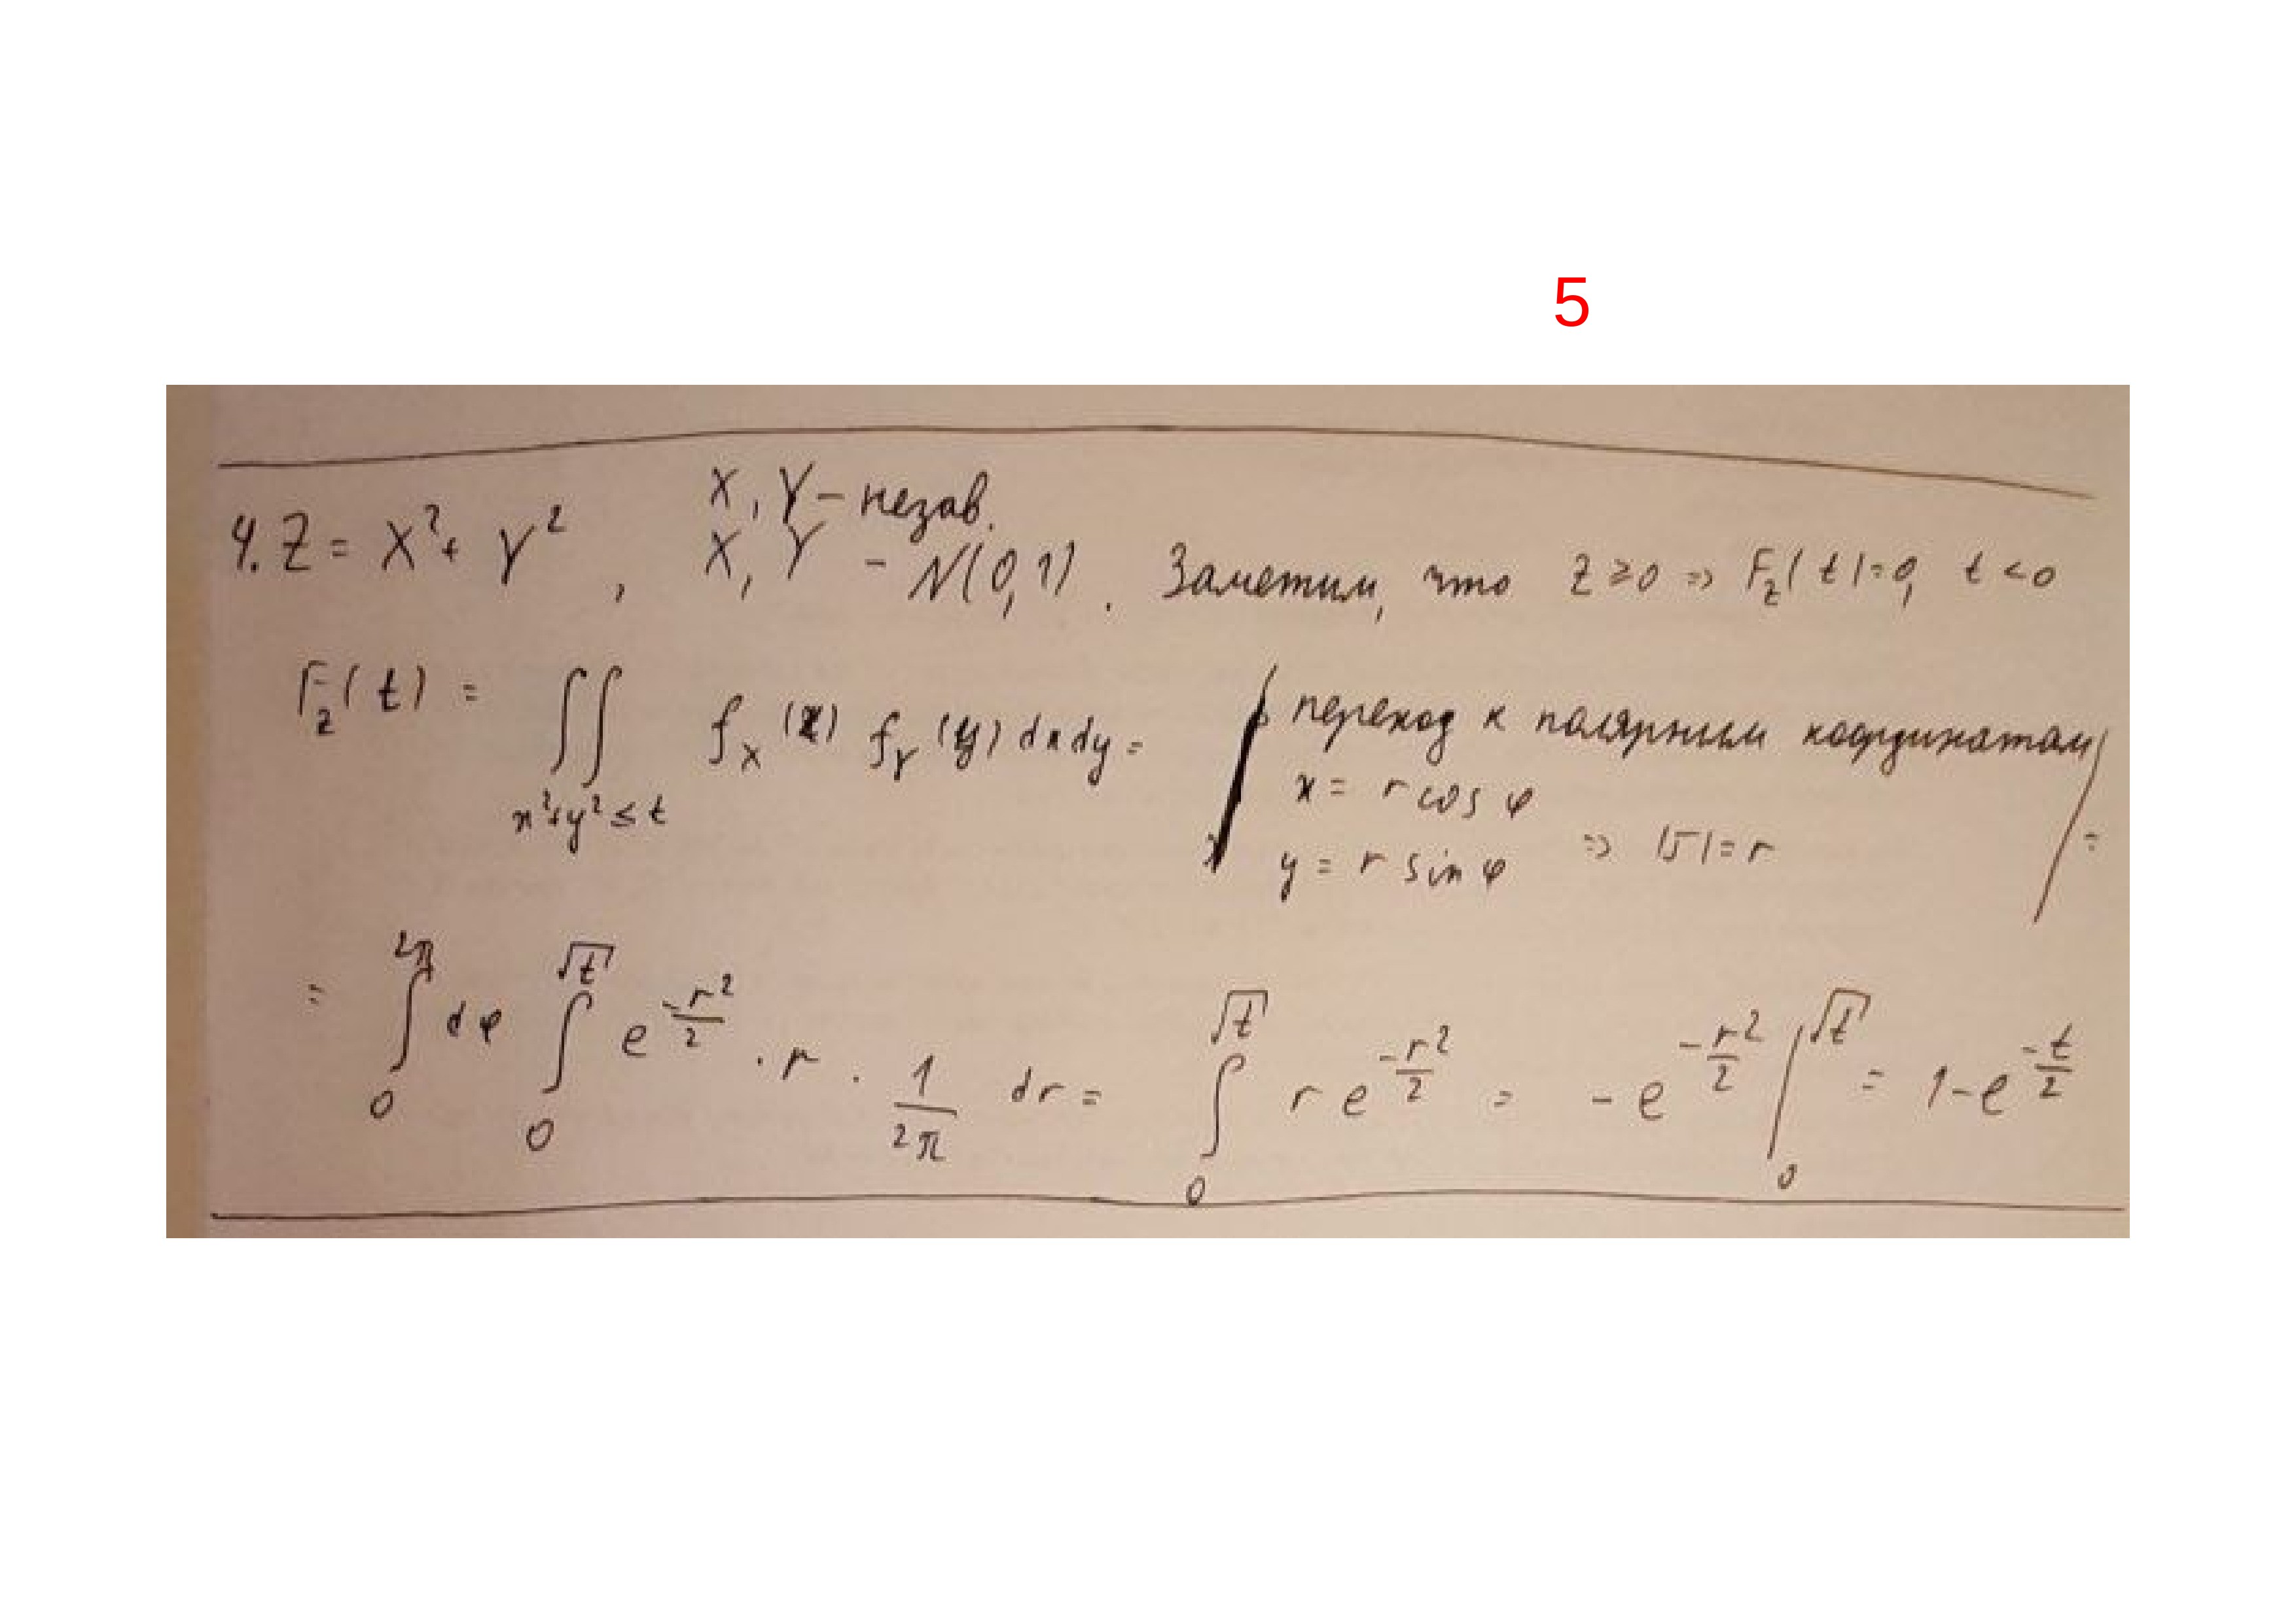 5
X, Y - незав.
4. Z = X² + Y² , X, Y - N(0,1). Заметим, что Z ≥ 0 => F_Z(t)=0, t < 0
F_Z(t) = ∬ f_X(x) f_Y(y) dx dy = | переход к полярным координатам |
x²+y² ≤ t
x = r cos φ
y = r sin φ => |J| = r =
= ∫₀^{2π} dφ ∫₀^{√t} e^{-r²/2} · r · 1/2π dr = ∫₀^{√t} r e^{-r²/2} = -e^{-r²/2} |₀^{√t} = 1-e^{-t/2}